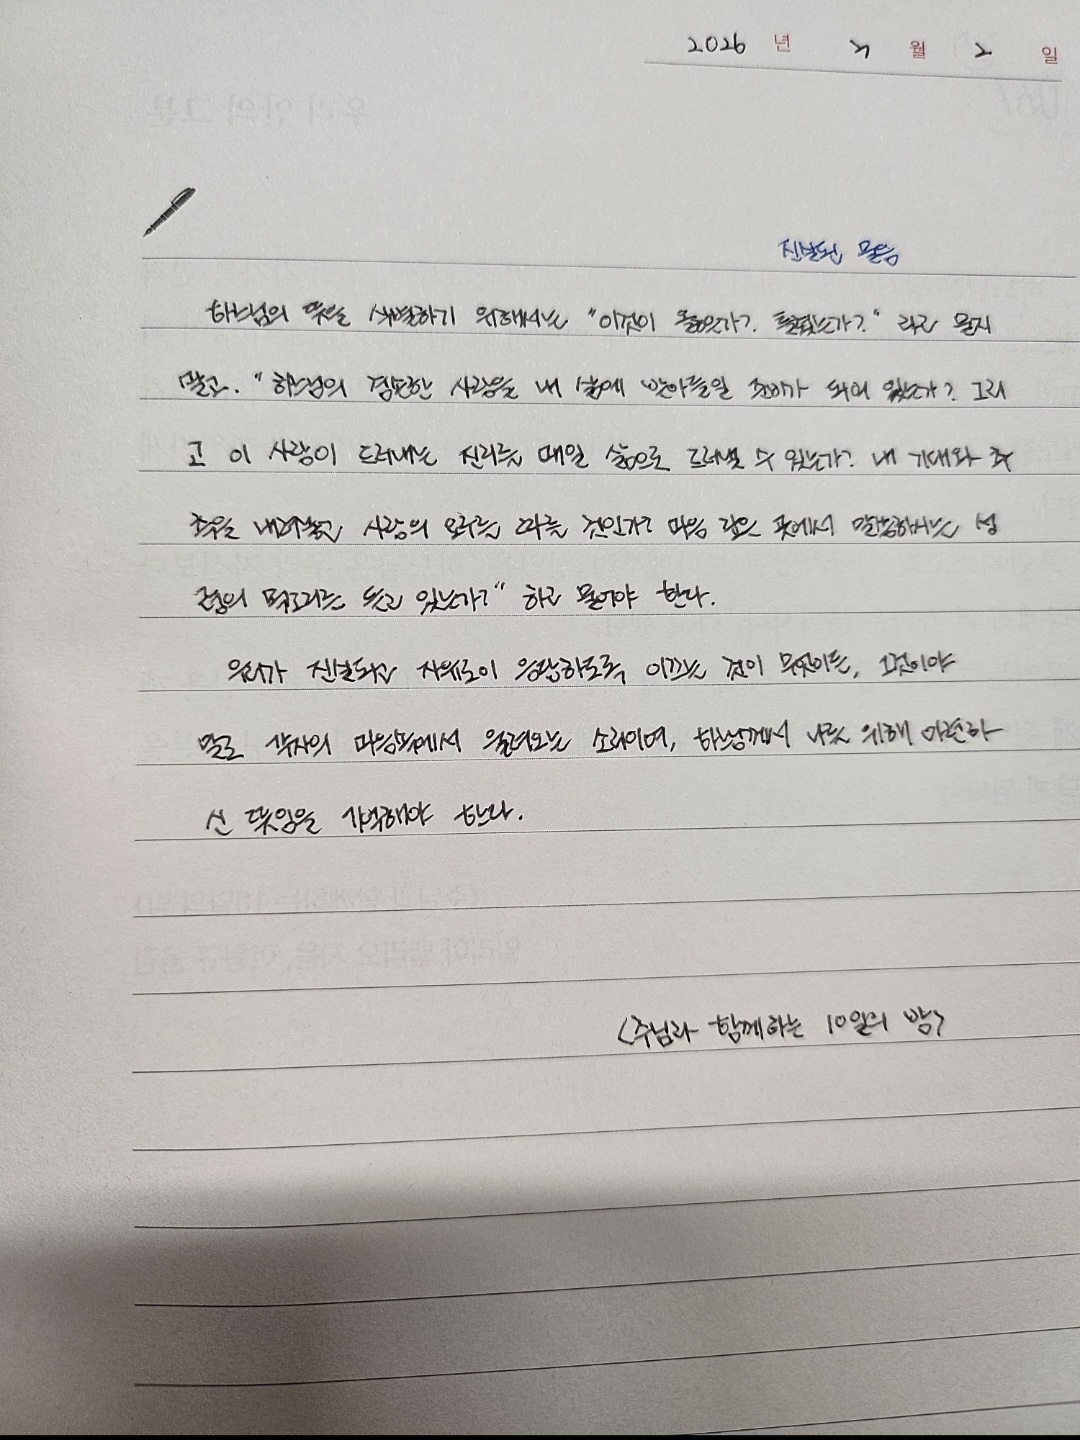 2026 년 월 2 일
진실된 물음
하느님의 뜻을 식별하기 위해서는 "이것이 옳은가?. 틀렸는가?." 라고 묻지
말고. "하느님의 겸손한 사랑을 내 삶에 받아들일 준비가 되어 있는가? 그리
고 이 사랑이 드러내는 진리를 매일 삶으로 드러낼 수 있는가? 내 기대와 추
측을 내려놓고 사랑의 요구를 따를 것인가? 마음 깊은 곳에서 말씀하시는 성
령의 목소리를 듣고 있는가?" 하고 물어야 한다.
우리가 진실되고 자유로이 응답하도록 이끄는 것이 무엇이든, 그것이야
말로 각자의 마음속에서 울려오는 소리이며, 하느님께서 나를 위해 마련하
신 뜻임을 기억해야 한다.
<주님과 함께하는 10일의 밤>